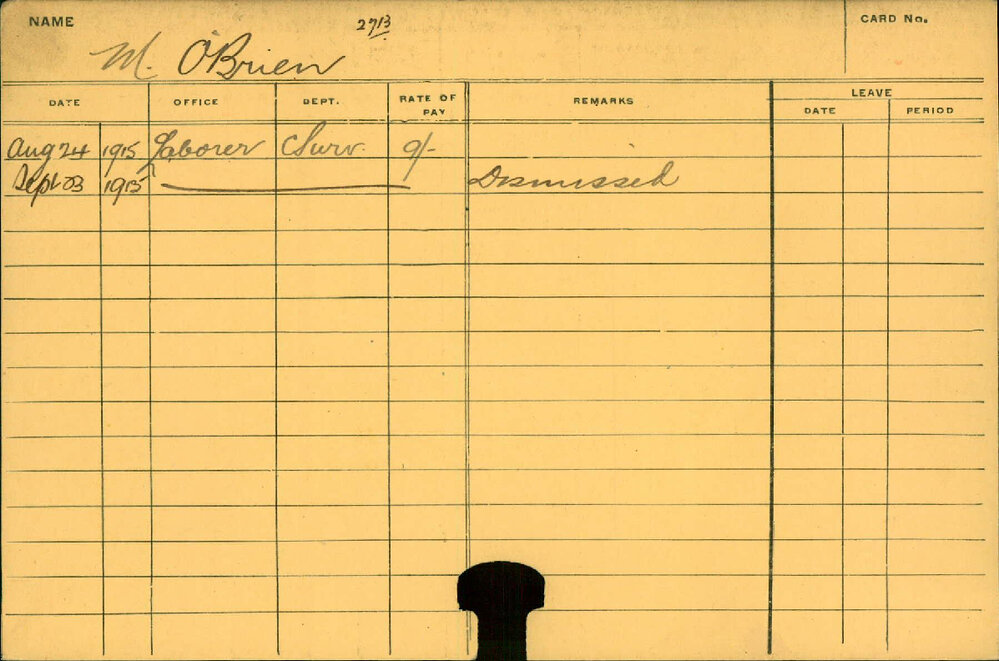 NAME 2713 CARD No.
M. O'Brien
DATE OFFICE DEPT. RATE OF PAY REMARKS LEAVE
DATE PERIOD
Aug 24 1915 Laborer C Surv. 9/-
Sept 23 1915 Dismissed